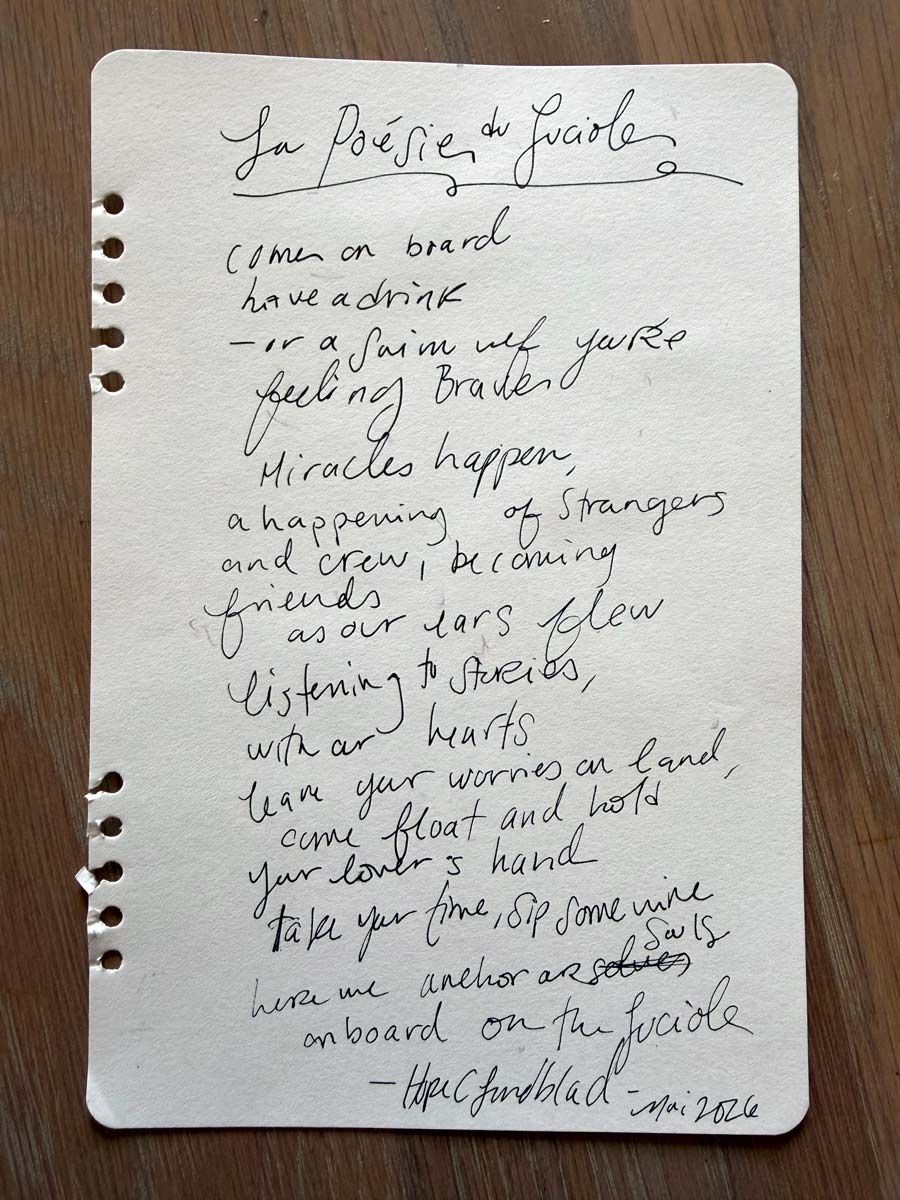 La Poésie du Luciole
come on board
have a drink
– or a swim if you're
feeling Brave
Miracles happen,
a happening of strangers
and crew, becoming
friends
as our ears flew
listening to stories,
with our hearts
leave your worries on land,
come float and hold
your lover's hand
take your time, sip some wine
souls
here we anchor our
onboard on the Luciole
– Hope C Lundblad – Mai 2026